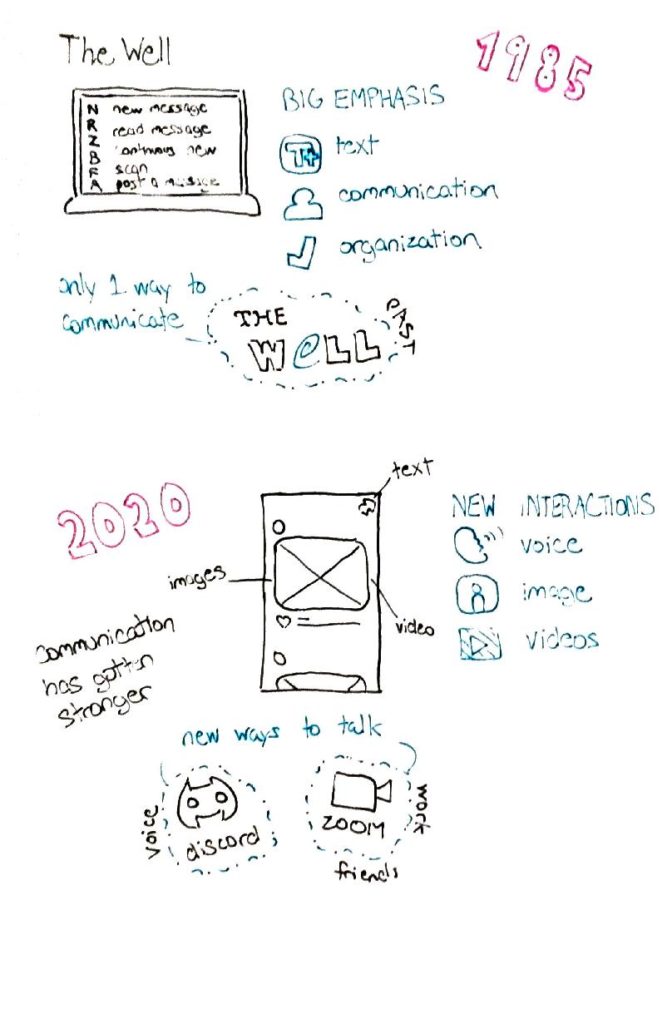 The Well
1985
N new message
R read message
Z continuous new
B
F scan
A post a message
BIG EMPHASIS
T+ text
communication
organization
only 1 way to
communicate
THE
W@LL
PAST
2020
text
images
video
NEW INTERACTIONS
voice
image
videos
communication
has gotten
stronger
new ways to talk
voice
discord
ZOOM
work
friends